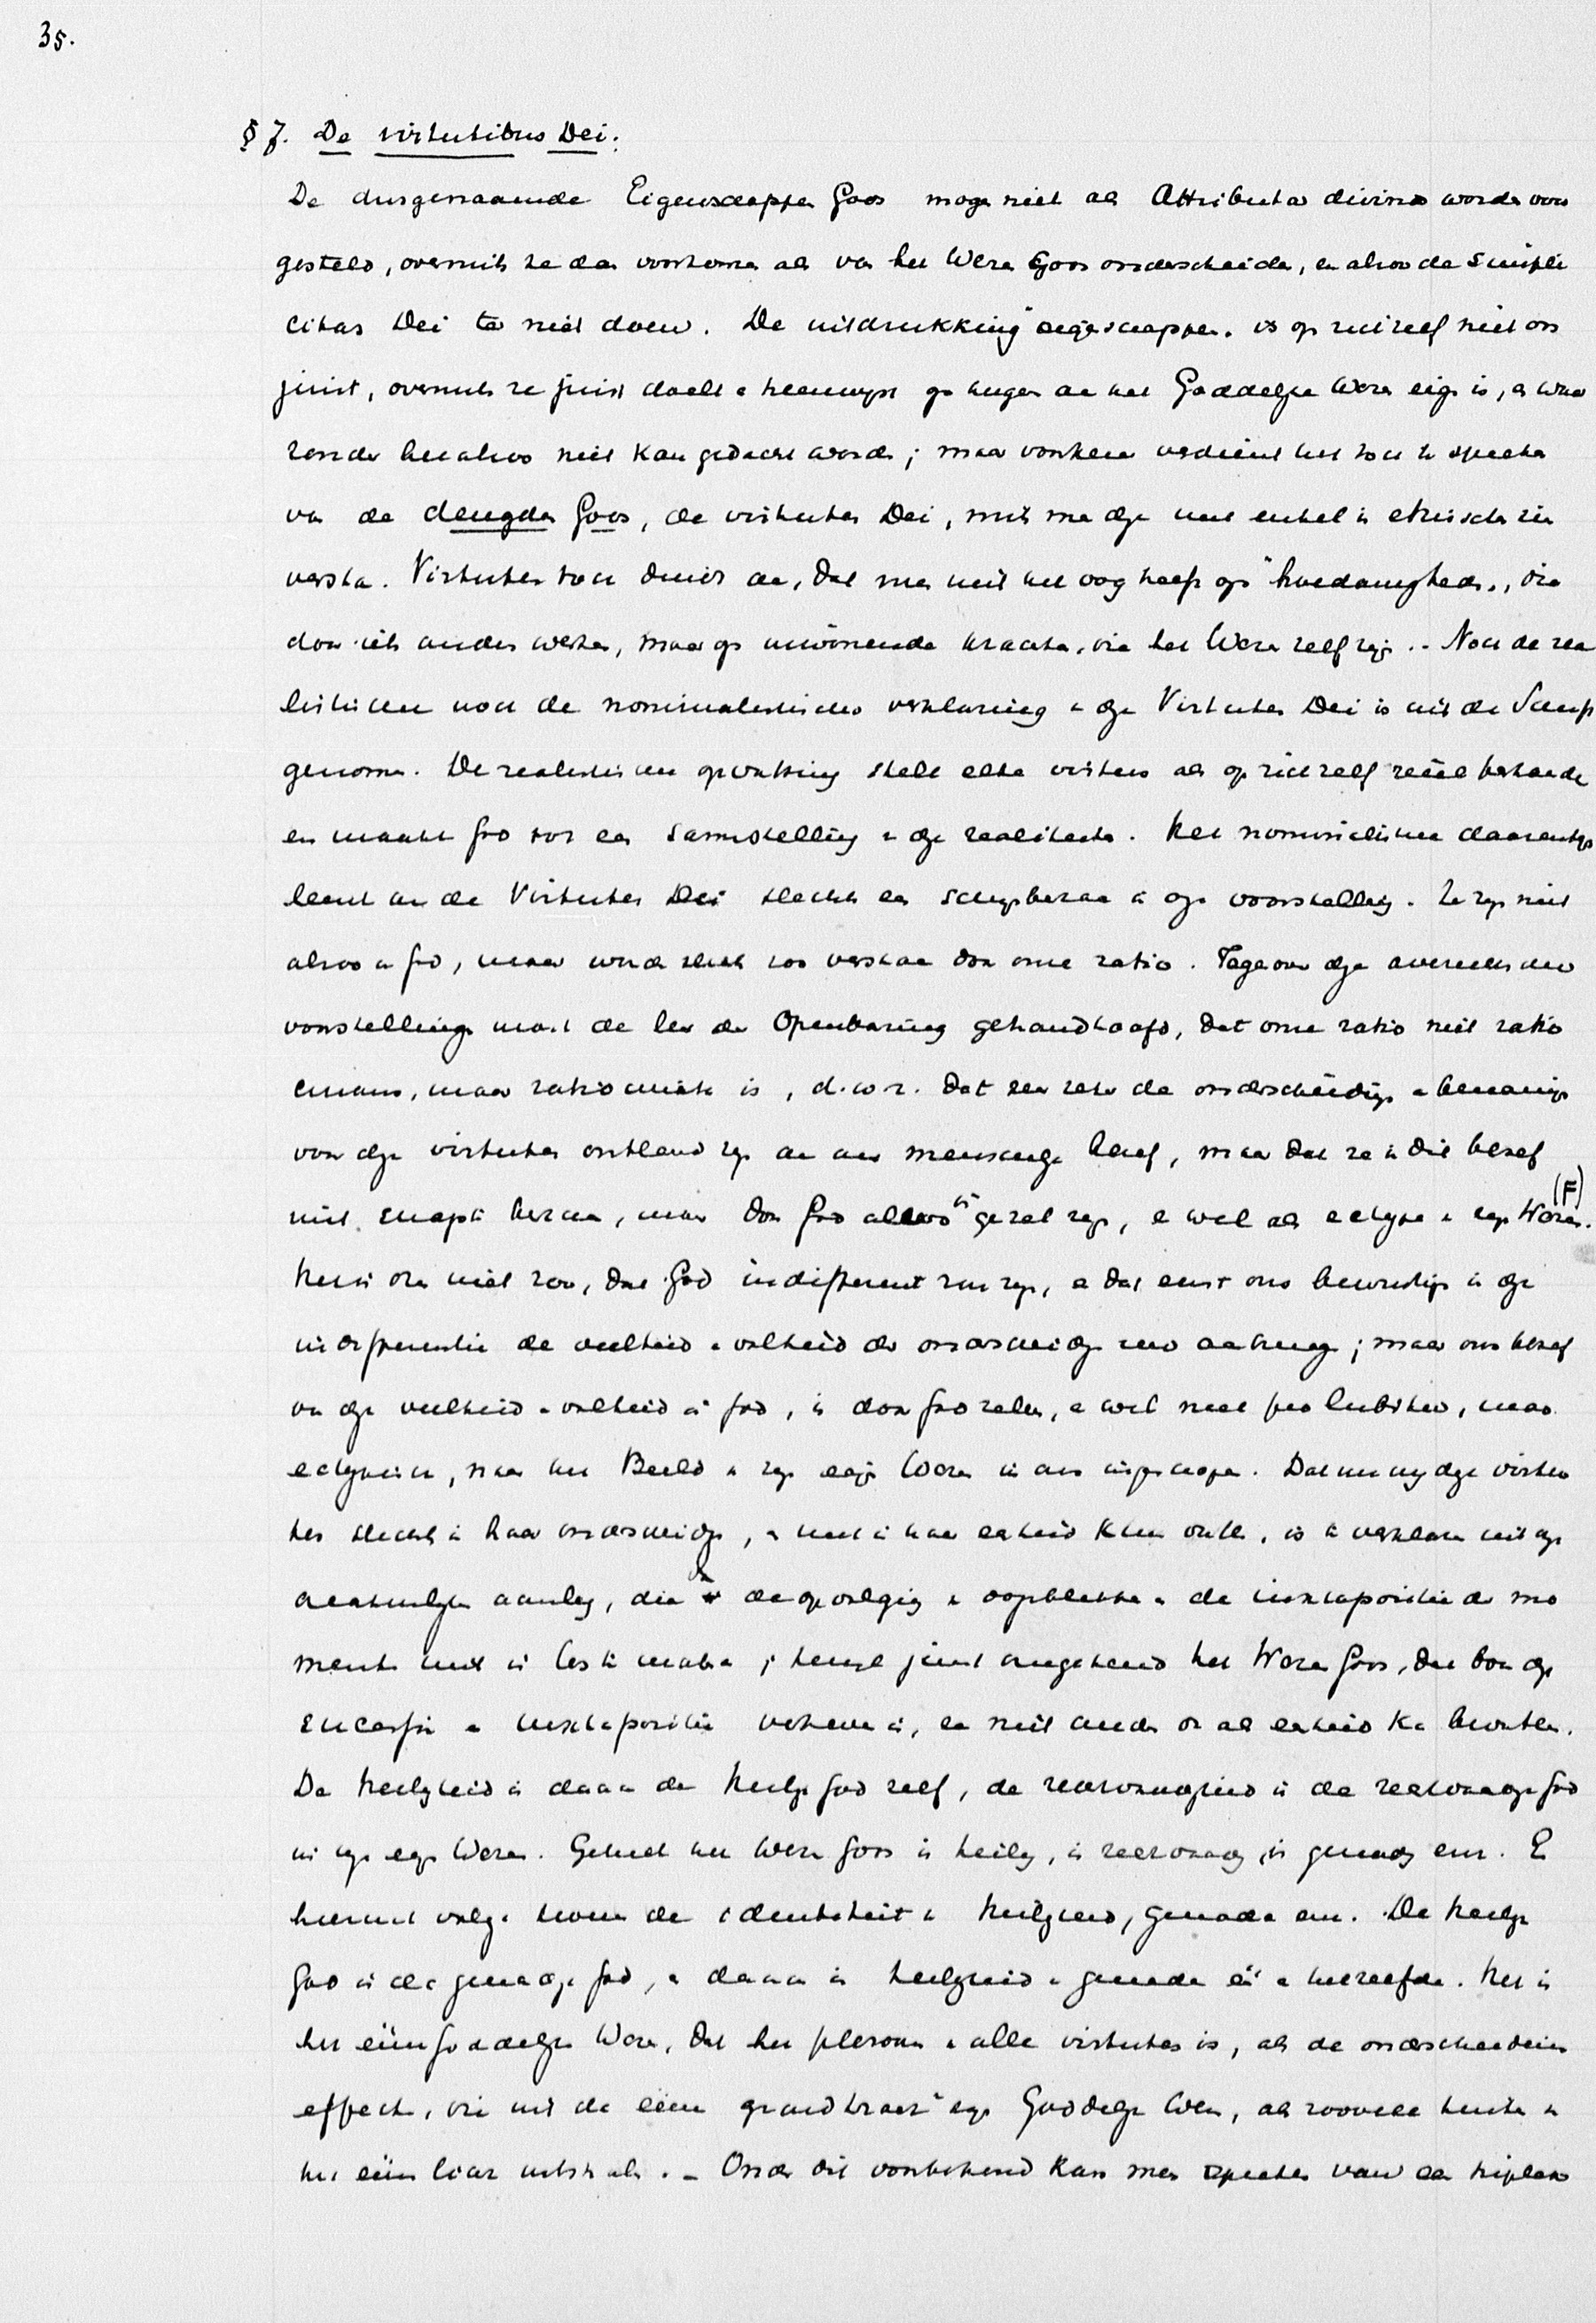 35.
§ 7. De virtutibus Dei.
De dusgenaamde Eigenschappen Gods mogen niet als Attributa divina worden voor
gesteld, overmits ze dan voorkomen als van het Wezen Gods onderscheiden, en alzoo de simpli
citas Dei te niet doen. De uitdrukking "eigenschappen" is op zichzelf niet on
juist, overmits ze juist doelt en heenwijst op hetgeen aan het Goddelijke Wezen eigen is, en waar
zonder het alzoo niet kan gedacht worden; maar voorkeur verdient het toch te spreken
van de deugden Gods, de virtutes Dei, mits men deze niet enkel in ethischen zin
versta. Virtutes toch duidt aan, dat men niet het oog heeft op "hoedanigheden", die
door iets anders werken, maar op inwonende krachten, die het Wezen zelf zijn. – Noch de rea
listische noch de nominalistische verklaring van deze Virtutes Dei is uit de Schrift
genomen. De realistische opvatting stelt elke virtus als op zichzelf reëel bestaande
en maakt God tot een samenstelling van deze realiteiten. Het nominalisme daarentegen
leent aan de Virtutes Dei slechts een schijnbestaan in onze voorstelling. Ze zijn niet
alzoo in God, maar worden slechts zoo verstaan door onze ratio. Tegenover deze averechtsche
voorstellingen moet de leer der Openbaring gehandhaafd, dat onze ratio niet ratio
emans, maar ratio is, d.w.z. dat zeer zeker de onderscheiding en benaming
van deze virtutes ontleend zijn aan ons menschelijk besef, maar dat ze in dit besef
niet bestaan, maar door God alzoo in gezet zijn, en wel als ectype van zijn Wezen. (F)
Het is dan niet zoo, dat God indifferent zou zijn, en dat eerst ons bewustzijn in deze
indifferentie de veelheid en volheid der onderscheidingen aanbrengt; maar ons besef
van deze veelheid en volheid in God, is door God zelven, en wel niet pro lubitu, maar
ectypisch, naar het Beeld van zijn eigen Wezen in ons ingeschapen. Dat wij deze virtu
tes slechts in haar onderscheiding, en niet in haar eenheid kunnen , is te verklaren uit onzen
aanleg, die de opvolging en de juxtapositie der mo
menten niet is los te maken; terwijl juist omgekeerd het Wezen Gods, dat boven deze
en juxtapositie verheven is, en niet anders dan als eenheid kan .
De heiligheid is daarom de heilige God zelf, de rechtvaardigheid is de rechtvaardige God
in zijn eigen Wezen. Geheel het Wezen Gods is heilig, is rechtvaardig, is genadig enz. En
hieruit volgt tevens de identiteit van heiligheid, genade enz. De heilige
God is de genadige God, en daarom is heiligheid en genade één en hetzelfde. Het is
het ééne Goddelijke Wezen, dat het pleroma van alle virtutes is, als de onderscheidene
effecten, die uit de ééne grondkracht van zijn Goddelijk Wezen, als zoovele tinten van
het ééne licht uitstralen. – Onder dit voorbehoud kan men spreken van een triplex